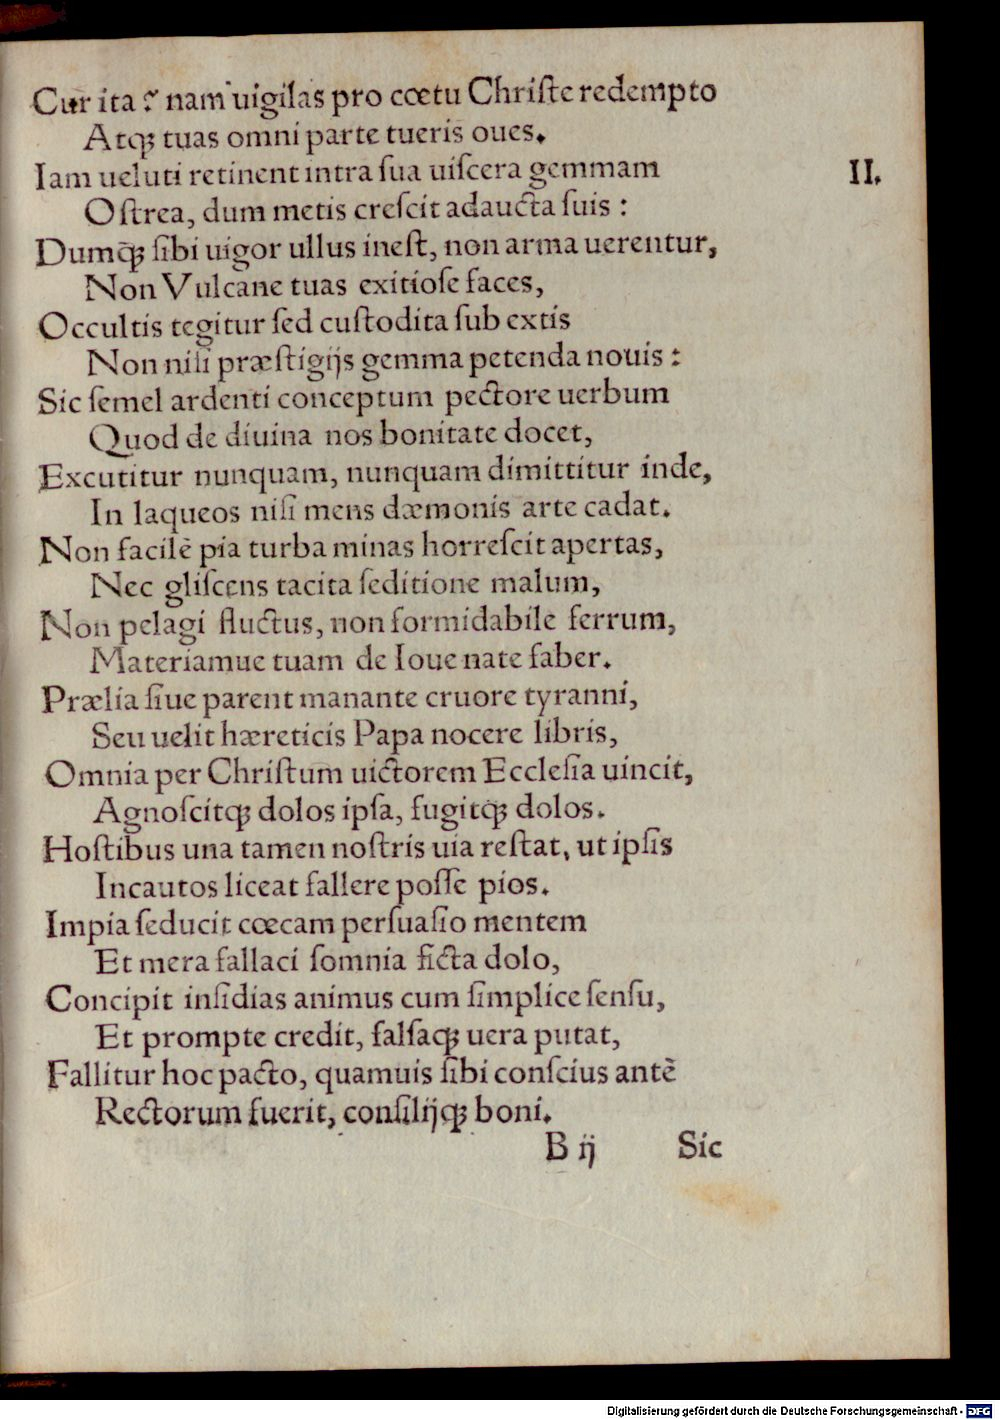 Cur ita? nam uigilas pro cœtu Christe redempto
Atq; tuas omni parte tueris oues.
Iam ueluti retinent intra sua uiſcera gemmam II.
Oſtrea, dum metis creſcit adaucta ſuis :
Dumq̃; ſibi uigor ullus ineſt, non arma uerentur,
Non Vulcane tuas exitioſe faces,
Occultis tegitur ſed cuſtodita ſub extis
Non niſi præſtigijs gemma petenda nouis :
Sic ſemel ardenti conceptum pectore uerbum
Quod de diuina nos bonitate docet,
Excutitur nunquam, nunquam dimittitur inde,
In laqueos niſi mens dæmonis arte cadat.
Non facilè pia turba minas horreſcit apertas,
Nec gliſcens tacita ſeditione malum,
Non pelagi fluctus, non formidabile ferrum,
Materiamue tuam de Ioue nate faber.
Prælia ſiue parent manante cruore tyranni,
Seu uelit hæreticis Papa nocere libris,
Omnia per Chriſtum uictorem Eccleſia uincit,
Agnoſcitq; dolos ipſa, fugitq̃; dolos.
Hoſtibus una tamen noſtris uia reſtat, ut ipſis
Incautos liceat fallere poſſe pios.
Impia ſeducit cœcam perſuaſio mentem
Et mera fallaci ſomnia ficta dolo,
Concipit inſidias animus cum ſimplice ſenſu,
Et prompte credit, falſaq; uera putat,
Fallitur hoc pacto, quamuis ſibi conſcius antè
Rectorum fuerit, conſilijq; boni.
B ij Sic
Digitalisierung gefördert durch die Deutsche Forschungsgemeinschaft - DFG